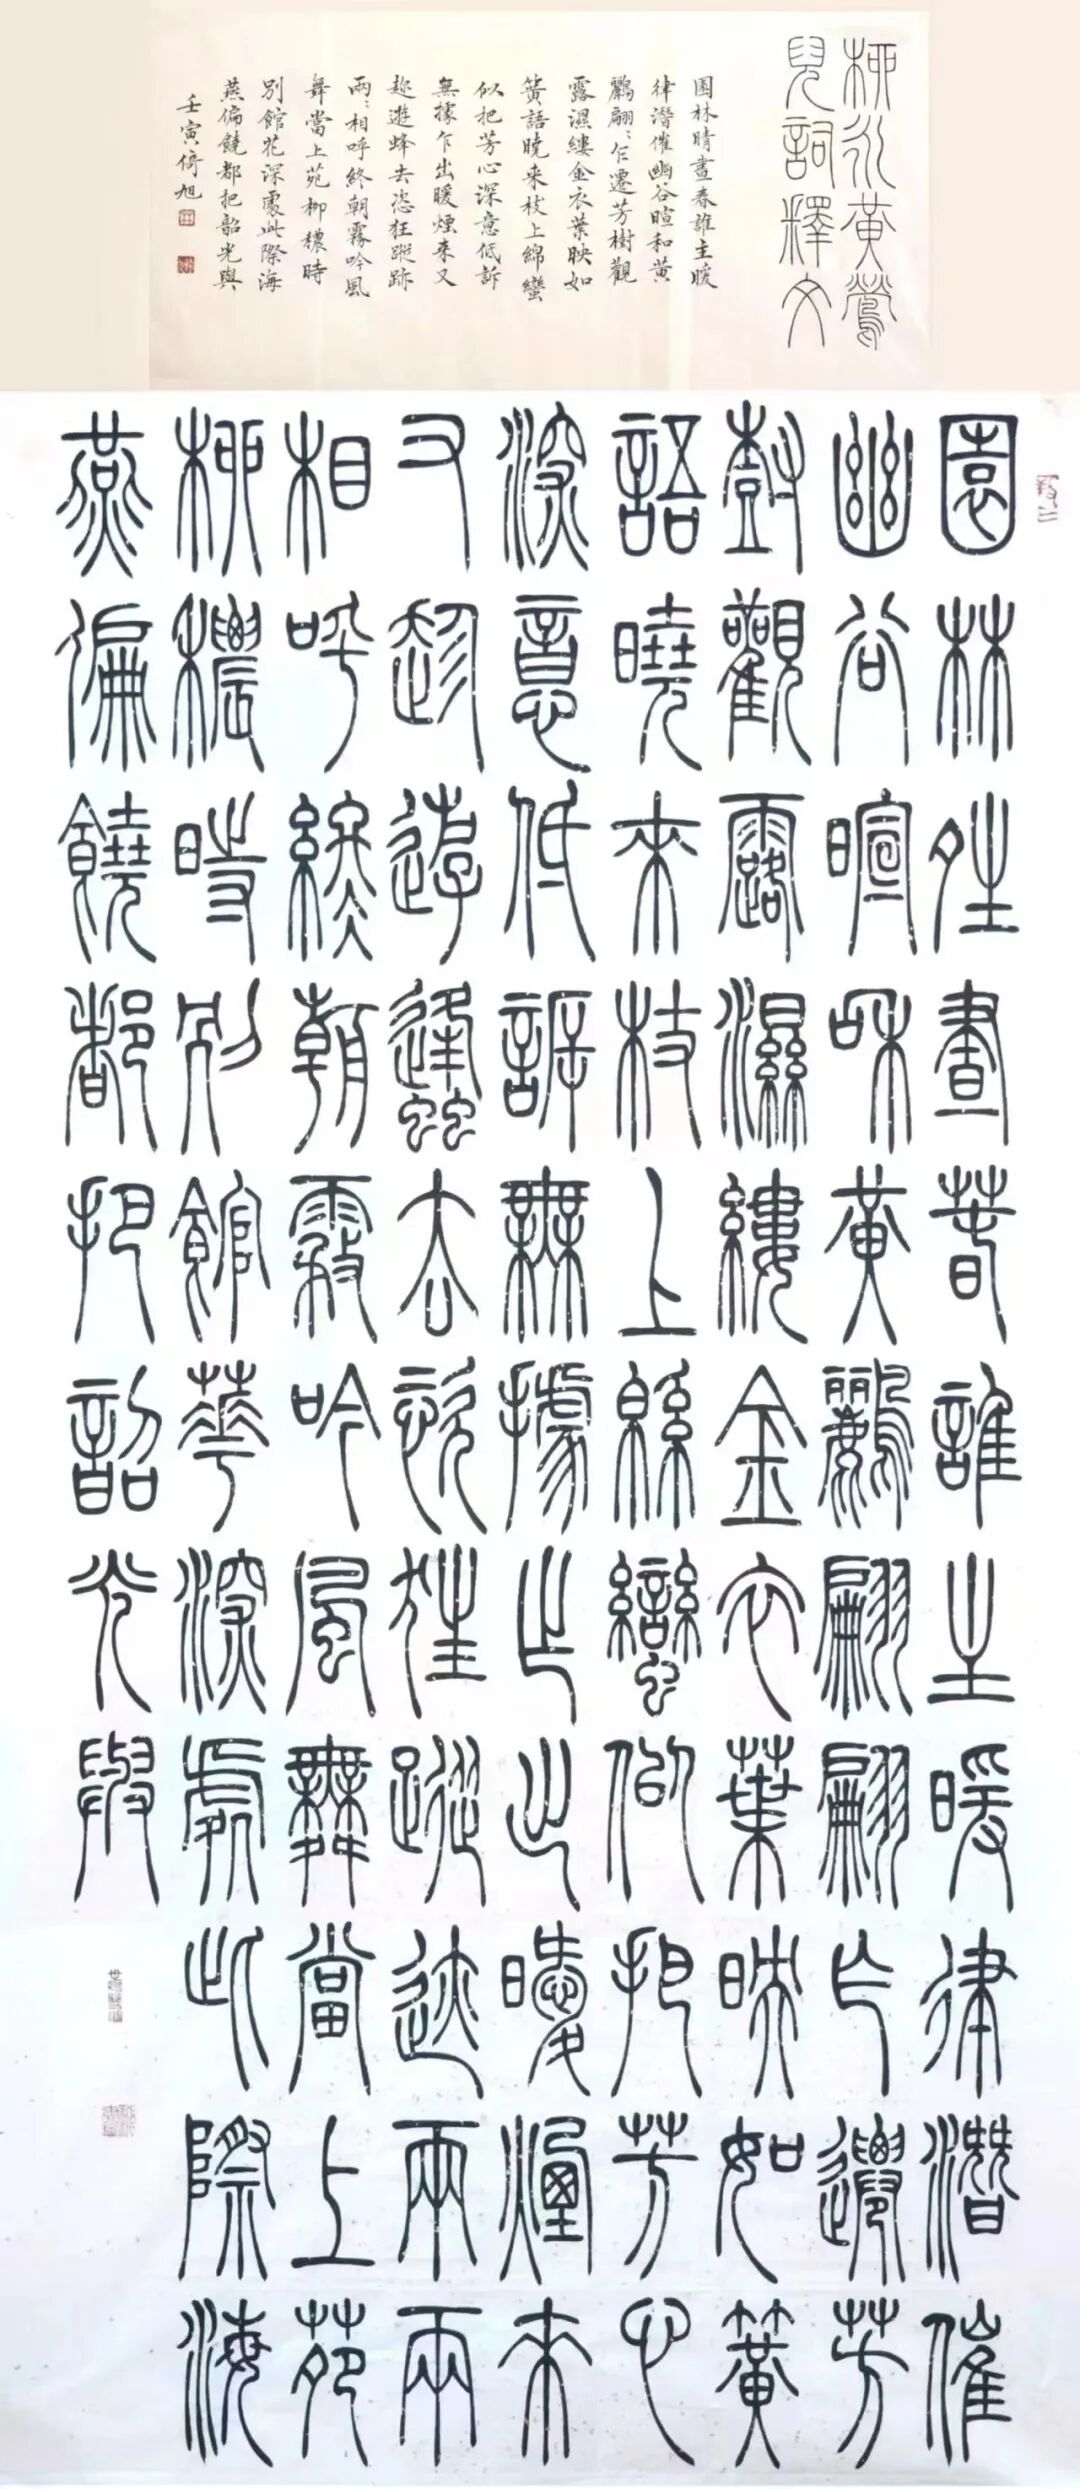 柳永黃鶯
兒詞釋文
園林晴晝春誰主暖
律潛催幽谷暄和黃
鸝翩〻乍遷芳樹觀
露濕縷金衣葉映如
簧語曉來枝上綿蠻
似把芳心深意低訴
無據乍出暖煙來又
趁遊蜂去恣狂蹤跡
兩〻相呼終朝霧吟風
舞當上苑柳穠時
別館花深處此際海
燕偏饒都把韶光與
壬寅倚旭
園林晴晝春誰主暖律潛催
幽谷暄和黃鸝翩翩乍遷芳
樹觀露濕縷金衣葉映如簧
語曉來枝上緜蠻似把芳心
深意低訴無據乍出暖煙來
又趁遊蜂去恣狂蹤迹兩兩
相呼終朝霧吟風舞當上苑
柳穠時別館華深處此際海
燕偏饒都把韶光與